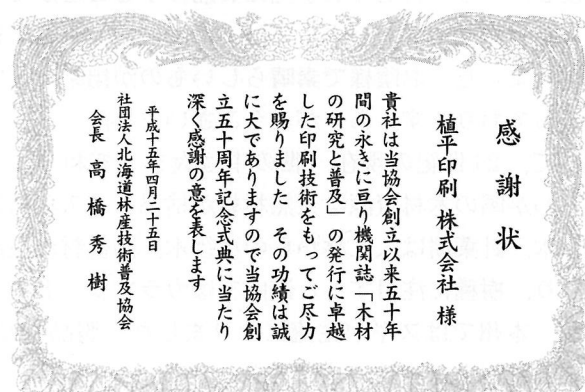 感謝状
植平印刷株式会社 様
貴社は当協会創立以来五十年
間の永きに亘り機関誌「木材
の研究と普及」の発行に卓越
した印刷技術をもってご尽力
を賜りました その功績は誠
に大でありますので当協会創
立五十周年記念式典に当たり
深く感謝の意を表します
平成十五年四月二十五日
社団法人北海道林産技術普及協会
会長 高橋秀樹